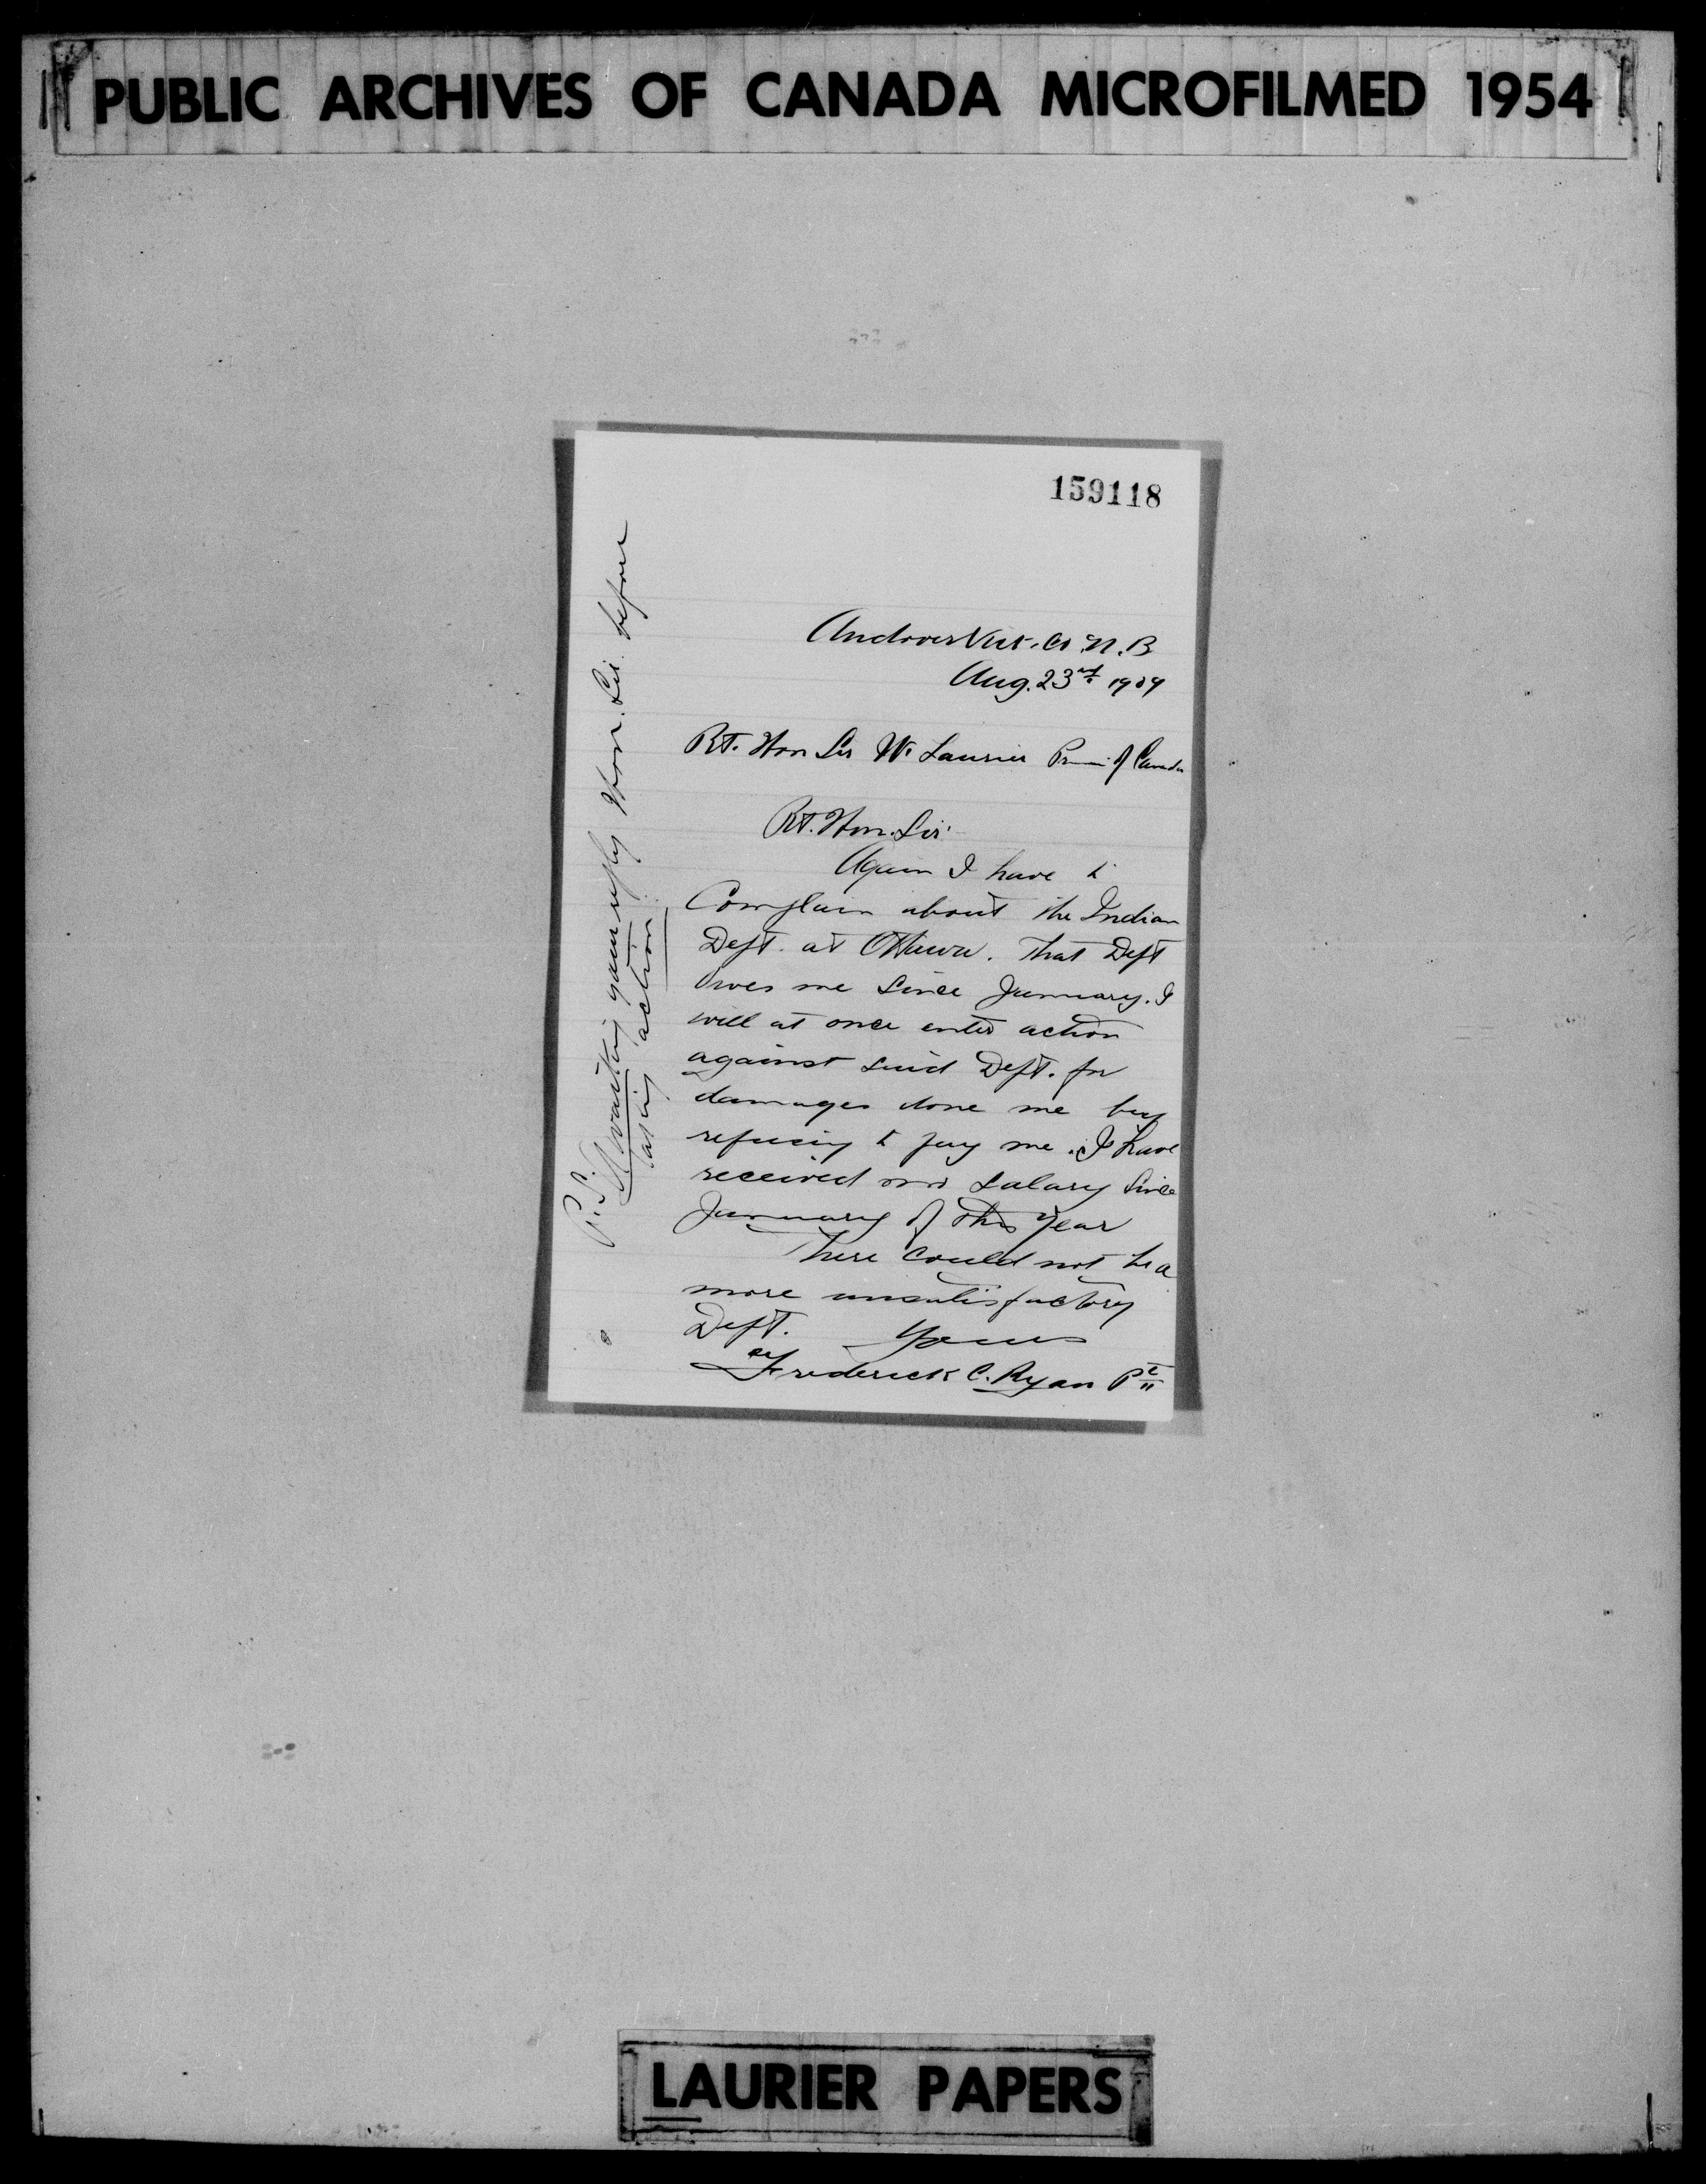 PUBLIC ARCHIVES OF CANADA MICROFILMED 1954
159118
Andover Vict. Co. N. B
Aug. 23rd 1909
Rt. Hon Sir W. Laurier Prem. of Canada
Rt. Hon. Sir
Again I have to
Complain about the Indian
Dept. at Ottawa. That Dept
owes me Since January. I
will at once enter action
against said Dept. for
damages done me by
refusing to pay me. I have
received no Salary Since
January of this year
There could not be a
more unsatisfactory
Dept. Yours
Frederick C. Ryan
P.S. Awaiting your reply Hon. Sir. before
taking action
LAURIER PAPERS